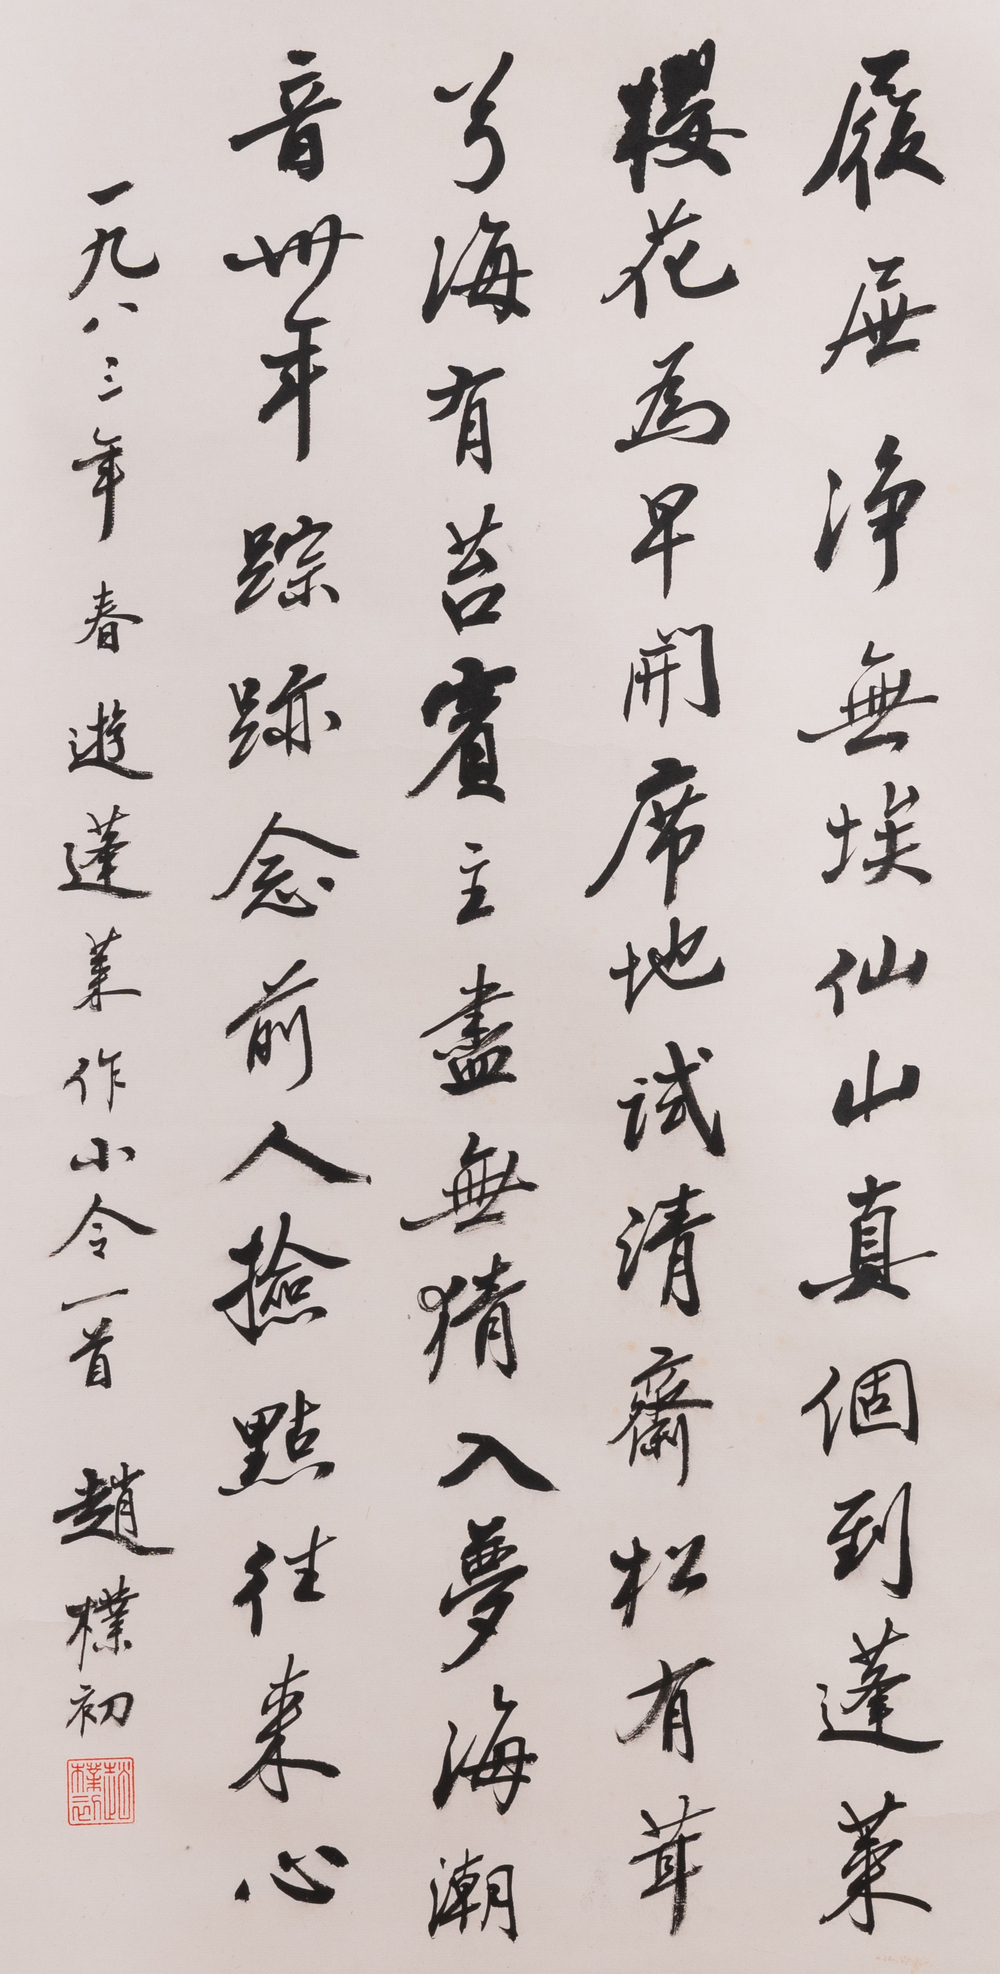 履屉净無埃仙山真個到蓬萊
櫻花為早開席地試清齋松有茸
兮海有苔賓主盡無猜入夢海潮
音卅年踪跡念前人撿點往來心
一九八三年春遊蓬萊作小令一首 趙樸初
趙樸初